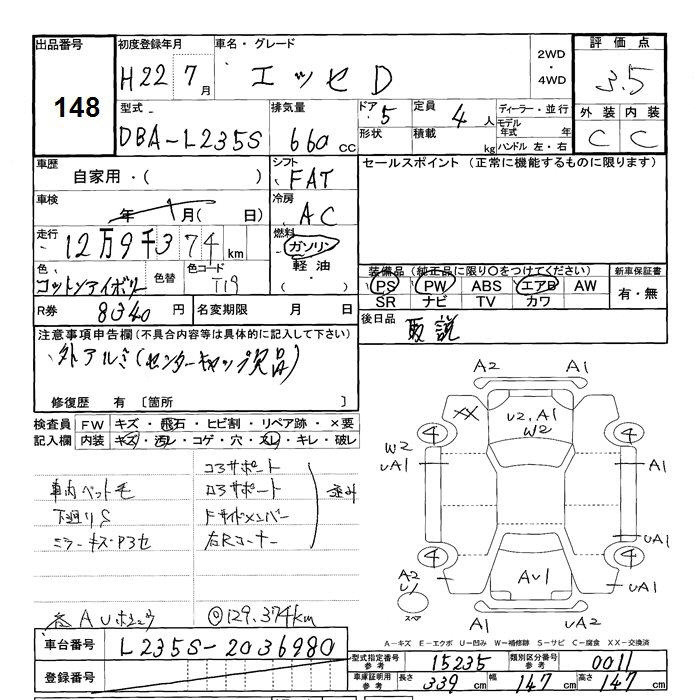 出品番号 初度登録年月 車名・グレード 2WD・4WD 評価点
148 H22年7月 エッセD 3.5
型式 排気量 ドア 定員 ディーラー・並行 外装 内装
DBA-L235S 660cc 5 4人 モデル年式 年 C C
形状 積載 kg ハンドル 左・右
車歴 自家用・( ) シフト FAT セールスポイント (正常に機能するものに限ります)
車検 年 月( 日) 冷房 AC
走行 12万9千374km 燃料 ガソリン 軽油・( )
色 コットンアイボリー 色替 色コード T19
装備品(純正品に限り○をつけてください) 新車保証書
PS PW ABS エアB AW 有・無
SR ナビ TV カワ
R券 8340円 名変期限 月 日
後日品 取説
注意事項申告欄(不具合内容等は具体的に記入して下さい)
外アルミ(センターキャップ欠品)
修復歴 有 〔箇所 〕
検査員 FW キズ・飛石・ヒビ割・リペア跡・×要
記入欄 内装 キズ・汚レ・コゲ・穴・スレ・キレ・破レ
コアサポート
車内ペット毛 ロアサポート 歪み
下廻りS Fサイドメンバー
ミラーキズ・アセ 右Rコーナー
AUホシュウ ◎129.374km
A2 A1
XX U2.A1 W2
4 4
W2 UA1 A1
UA1
4 4
A2 U1 AU1 UA1
スペア
UA1
A-キズ E-エクボ U-凹み W-補修跡 S-サビ C-腐食 XX-交換済
車台番号 L235S-2036980
型式指定番号 参考 15235 類別区分番号 参考 0011
登録番号
車庫証明用 参考 長さ 339cm 幅 147cm 高さ 147cm